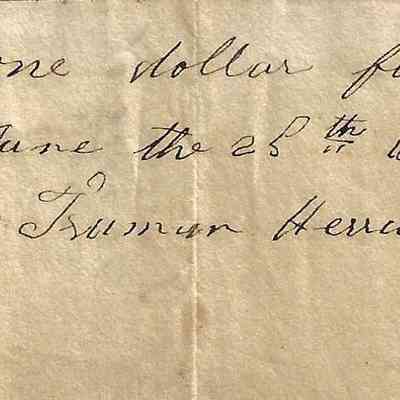 one dollar
June the 25th
Truman